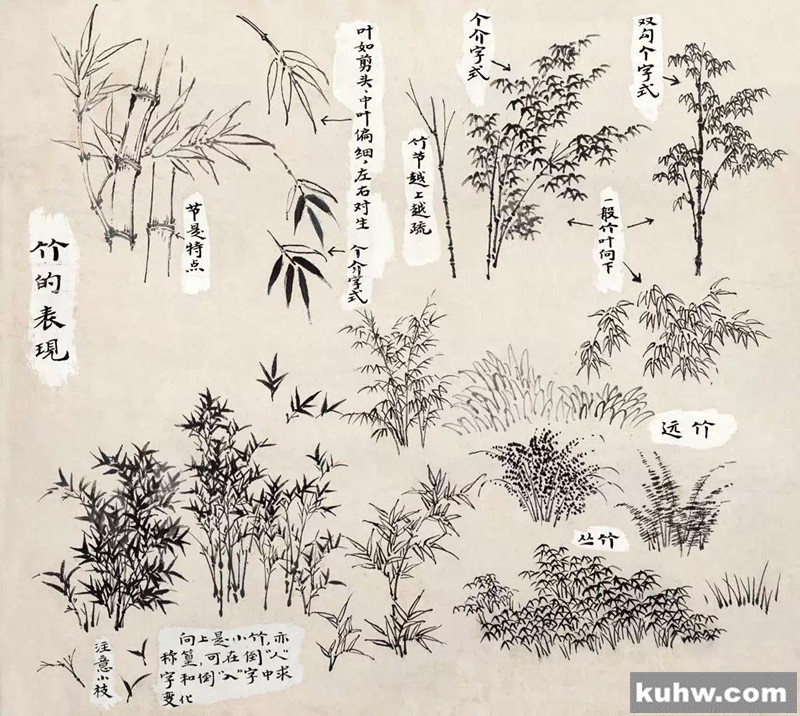 竹的表現
节是特点
叶如剪头，中叶偏细，左右对生
个介字式
竹节越上越疏
个介字式
双勾个字式
一般竹叶向下
远竹
丛竹
注意小枝
向上是小竹，亦
称篁，可在倒“人”
字和倒“入”字中求
变化
kuhw.com